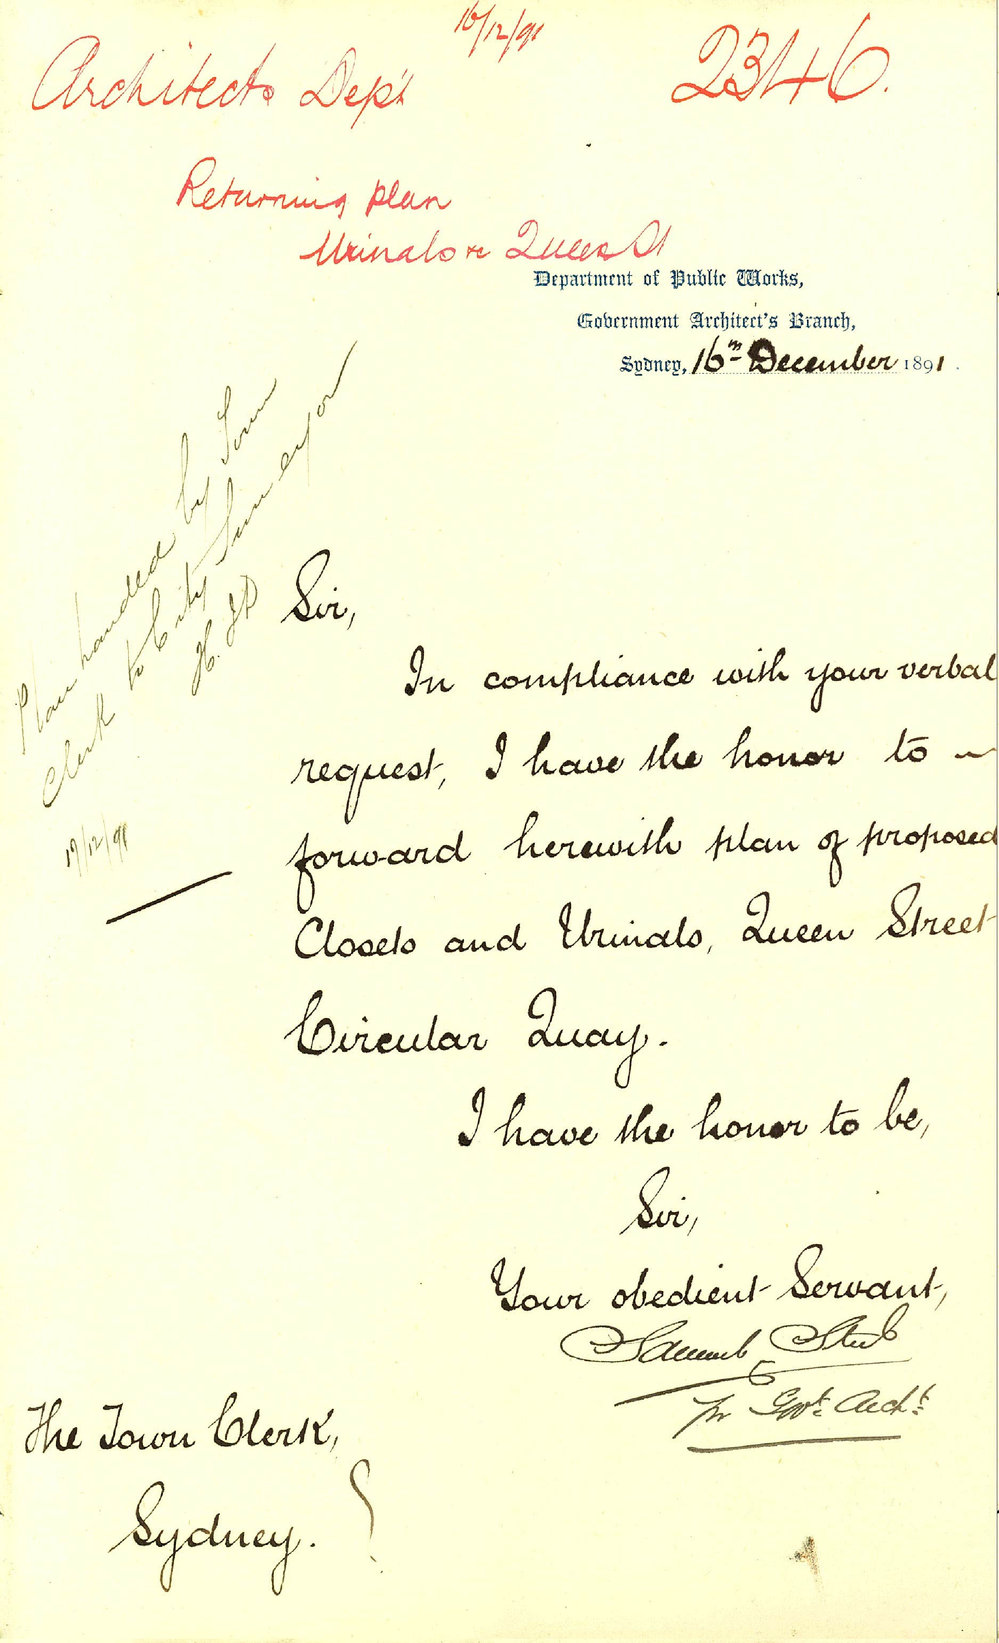 16/12/91
Architects Dep't
2346.
Returning plan
Urinals re Queen St
Department of Public Works,
Government Architect's Branch,
Sydney, 16th December 1891.
Plan handed by Town
Clerk to City Surveyor
19/12/91
Sir,
In compliance with your verbal
request, I have the honor to
forward herewith plan of proposed
Closets and Urinals, Queen Street
Circular Quay.
I have the honor to be,
Sir,
Your obedient Servant,
Samuel
pr Govt. Archt.
The Town Clerk,
Sydney.